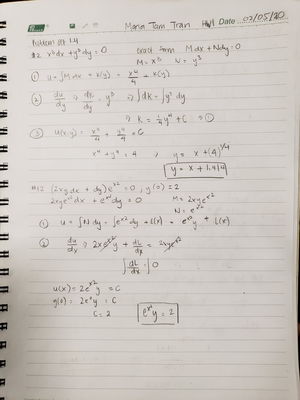 Maria Tam Tran HW1 Date 02/05/20
Problem set 1.4
#2 x³dx + y³dy = 0 Exact form Mdx + Ndy = 0
M = x³ N = y³
① u = ∫Mdx + k(y) = x⁴/4 + k(y)
② du/dy ⇒ dk/dy = y³ ⇒ ∫dk = ∫y³ dy
k = 1/4 y⁴ + C
③ u(x,y) = x⁴/4 + y⁴/4 = C
x⁴ + y⁴ = 4 ⇒ y = x + (4)^1/4
y = x + 1.414
#12 (2xydx + dy)e^x² = 0, y(0) = 2
2xye^x² dx + e^x² dy = 0 M = 2xye^x²
N = e^x²
① u = ∫Ndy = ∫e^x² dy + l(x) = e^x² y + l(x)
② du/dx ⇒ 2xe^x² y + dL/dx = 2xye^x²
∫dL/dx = ∫0
u(x) = 2e^x² y = C
y(0) = 2e^x y = C
C = 2 e^x² y = 2